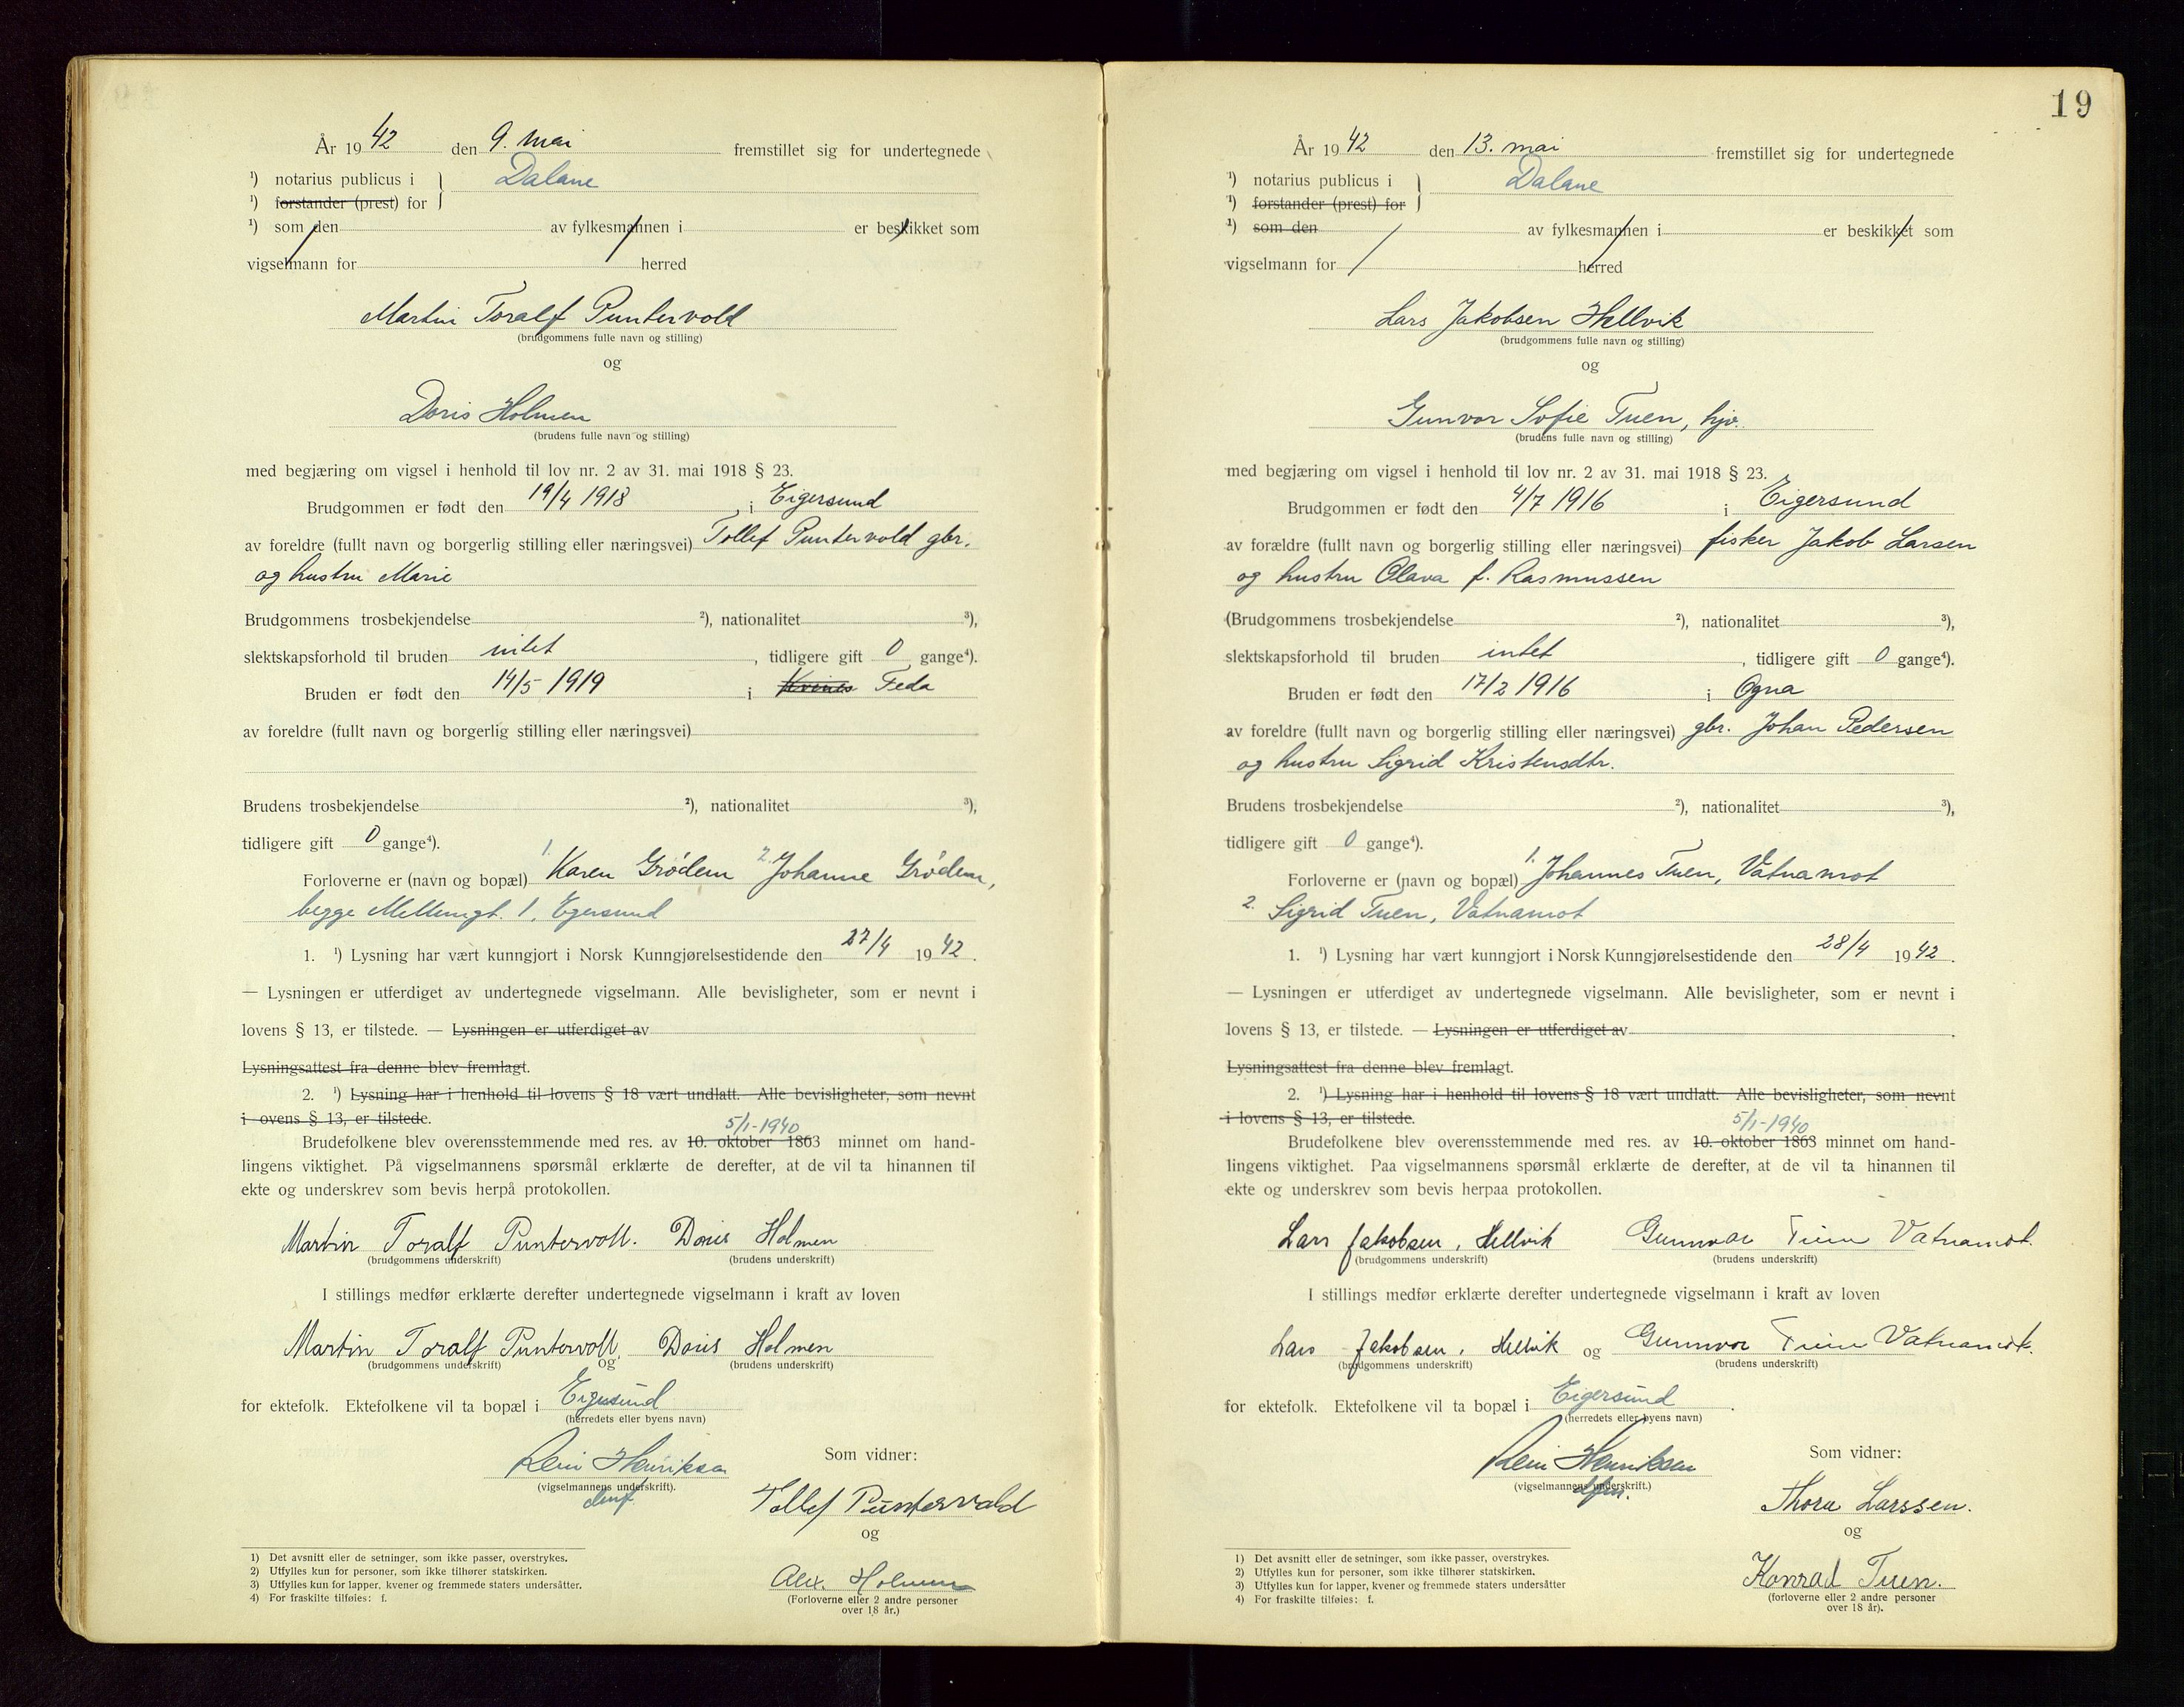 År 1942 den 9. mai fremstillet sig for undertegnede
¹) notarius publicus i Dalane
¹) forstander (prest) for
¹) som den av fylkesmannen i er beskikket som
vigselmann for herred
Martin Toralf Puntervold
(brudgommens fulle navn og stilling)
og
Doris Holmen
(brudens fulle navn og stilling)
med begjæring om vigsel i henhold til lov nr. 2 av 31. mai 1918 § 23.
Brudgommen er født den 19/4 1918, i Eigersund
av foreldre (fullt navn og borgerlig stilling eller næringsvei) Tollef Puntervold gbr.
og hustru Marie
Brudgommens trosbekjendelse ²), nationalitet ³),
slektskapsforhold til bruden intet, tidligere gift 0 gange⁴).
Bruden er født den 14/5 1919 i Kvines Feda
av foreldre (fullt navn og borgerlig stilling eller næringsvei)
Brudens trosbekjendelse ²), nationalitet ³),
tidligere gift 0 gange⁴).
Forloverne er (navn og bopæl) 1. Karen Grødem 2. Johanne Grødem,
begge Mellemgt. 1, Egersund
1. ¹) Lysning har vært kunngjort i Norsk Kunngjørelsestidende den 27/4 1942.
— Lysningen er utferdiget av undertegnede vigselmann. Alle bevisligheter, som er nevnt i
lovens § 13, er tilstede. — Lysningen er utferdiget av
Lysningsattest fra denne blev fremlagt.
2. ¹) Lysning har i henhold til lovens § 18 vært undlatt. Alle bevisligheter, som nevnt
i ovens § 13, er tilstede.
5/1-1940
Brudefolkene blev overensstemmende med res. av 10. oktober 1863 minnet om hand-
lingens viktighet. På vigselmannens spørsmål erklærte de derefter, at de vil ta hinannen til
ekte og underskrev som bevis herpå protokollen.
Martin Toralf Puntervoll. Doris Holmen
(brudgommens underskrift) (brudens underskrift)
I stillings medfør erklærte derefter undertegnede vigselmann i kraft av loven
Martin Toralf Puntervoll, og Doris Holmen
(brudgommens underskrift) (brudens underskrift)
for ektefolk. Ektefolkene vil ta bopæl i Eigersund
(herredets eller byens navn)
Rein Henriksen
(vigselmannens underskrift).
Som vidner:
Tollef Puntervold
og
Alex. Holmen
(Forloverne eller 2 andre personer
over 18 år.)
1) Det avsnitt eller de setninger, som ikke passer, overstrykes.
2) Utfylles kun for personer, som ikke tilhører statskirken.
3) Utfylles kun for lapper, kvener og fremmede staters undersåtter.
4) For fraskilte tilføies: f.
19
År 1942 den 13. mai fremstillet sig for undertegnede
¹) notarius publicus i Dalane
¹) forstander (prest) for
¹) som den av fylkesmannen i er beskikket som
vigselmann for herred
Lars Jakobsen Hellvik
(brudgommens fulle navn og stilling)
og
Gunvor Sofie Tuen, hjv.
(brudens fulle navn og stilling)
med begjæring om vigsel i henhold til lov nr. 2 av 31. mai 1918 § 23.
Brudgommen er født den 4/7 1916 i Eigersund
av forældre (fullt navn og borgerlig stilling eller næringsvei) fisker Jakob Larsen
og hustru Olava f. Rasmussen
(Brudgommens trosbekjendelse ²), nationalitet ³),
slektskapsforhold til bruden intet, tidligere gift 0 gange⁴).
Bruden er født den 17/2 1916 i Ogna
av foreldre (fullt navn og borgerlig stilling eller næringsvei) gbr. Johan Pedersen
og hustru Sigrid Kristensdtr.
Brudens trosbekjendelse ²), nationalitet ³),
tidligere gift 0 gange⁴).
Forloverne er (navn og bopæl) 1. Johannes Tuen, Vatnamot
2. Sigrid Tuen, Vatnamot
1. ¹) Lysning har vært kunngjort i Norsk Kunngjørelsestidende den 28/4 1942.
— Lysningen er utferdiget av undertegnede vigselmann. Alle bevisligheter, som er nevnt i
lovens § 13, er tilstede. — Lysningen er utferdiget av .
Lysningsattest fra denne blev fremlagt.
2. ¹) Lysning har i henhold til lovens § 18 vært undlatt. Alle bevisligheter, som nevnt
i lovens § 13, er tilstede.
5/1-1940
Brudefolkene blev overensstemmende med res. av 10. oktober 1863 minnet om hand-
lingens viktighet. Paa vigselmannens spørsmål erklærte de derefter, at de vil ta hinannen til
ekte og underskrev som bevis herpaa protokollen.
Lars Jakobsen, Hellvik Gunnvor Tuen Vatnamot.
(brudgommens underskrift) (brudens underskrift)
I stillings medfør erklærte derefter undertegnede vigselmann i kraft av loven
Lars Jakobsen, Hellvik og Gunnvor Tuen Vatnamot.
(brudgommens underskrift) (brudens underskrift)
for ektefolk. Ektefolkene vil ta bopæl i Eigersund.
(herredets eller byens navn)
Rein Henriksen
(vigselmannens underskrift.)
Som vidner:
Thora Larssen.
og
Konrad Tuen.
(forloverne eller 2 andre personer
over 18 år).
1) Det avsnitt eller de setninger, som ikke passer, overstrykes.
2) Utfylles kun for personer, som ikke tilhører statskirken.
3) Utfylles kun for lapper, kvener og fremmede staters undersåtter
4) For fraskilte tilføies: f.